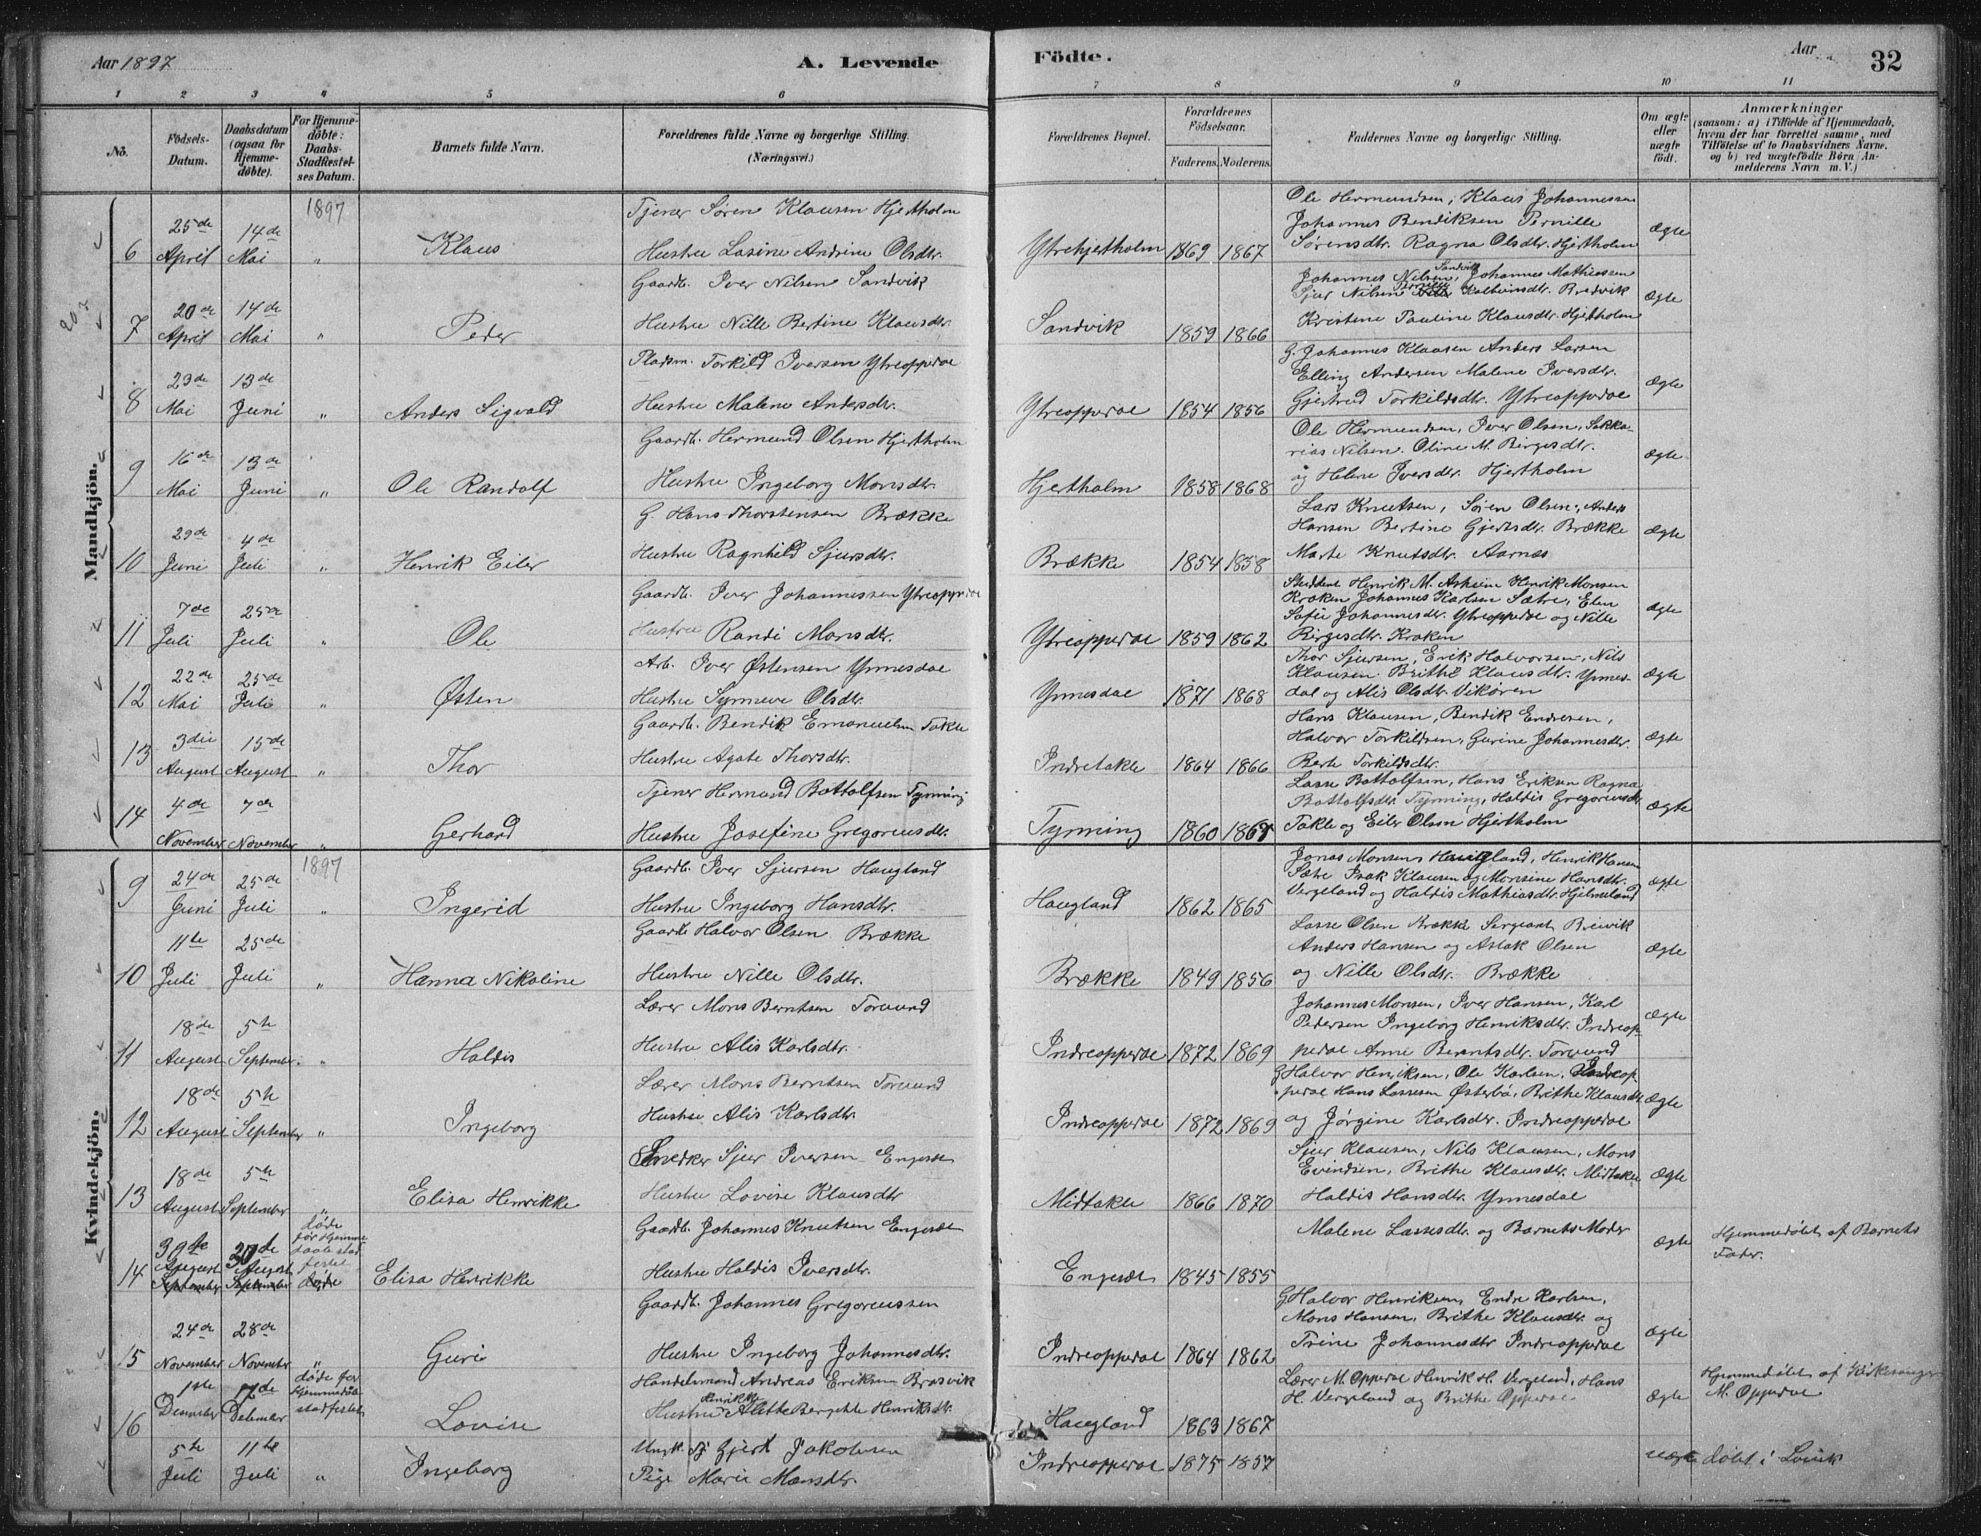 Aar 1897
A. Levende
Födte.
Aar
32
1 2 3 4 5 6 7 8 9 10 11
No.
Födsels-Datum.
Daabsdatum (ogsaa for Hjemme-döbte).
For Hjemme-döbte: Daabs-Stadfæstel-ses Datum.
Barnets fulde Navn.
Forældrenes fulde Navne og borgerlige Stilling. (Næringsvei.)
Forældrenes Bopæl.
Forældrenes Födselsaar.
Faderens. Moderens.
Faddernes Navne og borgerlige Stilling.
Om ægte eller uægte födt.
Anmærkninger
(saasom: a) i Tilfælde af Hjemmedaab, hvem der har forrettet samme, med Tilföielse af to Daabsvidners Navne, og b) ved uægtefödte Börn Anmelderens Navn m. V.)
Mandkjön.
1897
6 25de April 14de Mai " Klaus
Tjener Søren Klausen Hjertholm
Hustru Lasine Andrine Olsdtr.
Ytrehjertholm 1869 1867
Ole Hermundsen, Klaus Johannessen
Johannes Bendiksen Pernille
Sørensdtr. Ragna Olsdtr. Hjertholm
Ægte
7 20de April 14de Mai " Peder
Gaardb. Iver Nilsen Sandvik
Hustru Nille Bertine Klausdtr.
Sandvik 1859 1866
Johannes Nilsen Sandvik, Johannes Mathiassen
Sjur Nilsen Brithe Kolbeinsdtr. Bredvik
Kristine Pauline Klausdtr. Hjertholm
Ægte
8 23de Mai 13de Juni " Anders Sigvald
Pladsm. Torkild Iversen Ytreoppedal
Hustru Malene Andersdtr.
Ytreoppedal 1854 1856
G. Johannes Klausen Anders Larsen
Elling Andersen Malene Iversdtr.
Gjertrud Torkildsdtr. Ytreoppedal
Ægte
9 16de Mai 13de Juni " Ole Randolf
Gaardb. Hermund Olsen Hjertholm
Hustru Ingeborg Monsdtr.
Hjertholm 1858 1868
Ole Hermundsen, Iver Olsen, Sakka-
rias Nilsen. Oline M. Birgesdtr.
og Helene Iversdtr. Hjertholm
Ægte
10 29de Juni 4de Juli " Henrik Eiler
G. Hans Thorstensen Brække
Hustru Ragnhild Sjursdtr.
Brække 1854 1858
Lars Knutsen, Søren Olsen, Anders
Hansen Bertine Gjertsdtr. Brække
Marte Knutsdtr. Aarnes
Ægte
11 7de Juli 25de Juli " Ole
Gaardb. Iver Johannessen Ytreoppedal
Hustru Randi Monsdtr.
Ytreoppedal 1859 1862
Student Henrik M. Asheim Henrik Monsen
Kroken Johannes Karlsen Sætre, Elen
Sofie Johannesdtr. Ytreoppedal og Nille
Birgesdtr. Kroken
Ægte
12 22de Mai 25de Juli " Østen
Arb. Iver Østensen Ynnesdal
Hustru Synneve Olsdtr.
Ynnesdal 1871 1868
Thor Sjursen, Erik Halvorsen, Nils
Klausen Brithe Klausdtr. Ynnes-
dal og Alis Olsdtr. Vikøren
Ægte
13 3die August 15de August " Thor
Gaardb. Bendik Emanuelsen Takle
Hustru Agate Thorsdtr.
Indretakle 1864 1866
Hans Klausen, Bendik Endresen,
Halvor Torkildsen, Gurine Johannesdtr.
Berte Torkildsdtr.
Ægte
14 4de November 7de November " Gerhard
Tjener Hermund Bottolfsen Tynning
Hustru Josefine Gregoriusdtr.
Tynning 1860 1867
Lasse Bottolfsen, Hans Eriksen Ragna
Bottolfsdtr. Tynning, Haldis Gregoriusdtr.
Takle og Eiler Olsen Hjertholm
Ægte
Kvindekjön.
1897
9 24de Juni 25de Juli " Ingerid
Gaardb. Iver Sjursen Haugland
Hustru Ingeborg Hansdtr.
Haugland 1862 1865
Jonas Monsen Haugland, Henrik Hansen
Sætre Isak Klausen og Monsine Hansdtr.
Vergeland og Haldis Mathiasdtr. Hjelmeland
Ægte
10 11te Juli 25de Juli " Hanna Nikoline
Gaardb. Halvor Olsen Brække
Hustru Nille Olsdtr.
Brække 1849 1856
Lasse Olsen Brække Sergeant Breivik
Anders Hansen og Aslak Olsen
og Nille Olsdtr. Brække
Ægte
11 18de August 5te September " Haldis
Lærer Mons Berntsen Torvund
Hustru Alis Karlsdtr.
Indreoppedal 1872 1869
Johannes Monsen, Iver Hansen, Karl
Pedersen Ingeborg Henriksdtr. Indreop-
pedal Anne Berentsdtr. Torvund
Ægte
12 18de August 5te September " Ingeborg
Lærer Mons Berntsen Torvund
Hustru Alis Karlsdtr.
Indreoppedal 1872 1869
G Halvor Henriksen, Ole Karlsen, Indreop-
pedal Hans Lassesen Østerbø, Brithe Klausdtr.
og Jørgine Karlsdtr. Indreoppedal
Ægte
13 18de August 5te September " Elisa Henrikke
Snedker Sjur Iversen Engesæt
Hustru Lovise Klausdtr
Midtakle 1866 1870
Sjur Klausen, Nils Klausen, Mons
Evindsen, Brithe Klausdtr. Midtakle
Haldis Hansdtr. Ynnesdal
Ægte
14 30te August September 30te August September døde før Hjemmedaab stadfestet døde Elisa Henrikke
Gaardb. Johannes Knutsen Engesæt
Hustru Haldis Iversdtr.
Engesæt 1845 1855
Malene Lassesdtr. og Barnets Moder
Ægte
Hjemmedøbt af Barnets
Fader.
15 24de November 28de November " Guri
Gaardb. Johannes Gregoriussen
Hustru Ingeborg Johannesdtr.
Indreoppedal 1864 1862
G Halvor Henriksen, Endre Karlsen,
Mons Hansen, Brithe Klausdtr og
Trine Johannesdtr Indreoppedal
Ægte
16 1ste December 12de December døde før Hjemmedaab stadfestet Lovise
Handelsmand Andreas Eriksen Brosvik
Hustru Henrikke Alette Bergitte Henriksdtr.
Haugland 1863 1867
Lærer M. Oppedal Henrik H. Vergeland, Hans
H. Vergeland og Brithe Oppedal
Ægte
Hjemmedøbt af Kirkesanger
M. Oppedal
5te Juli 11te Juli " Ingeborg
Ungk. Gjert Jakobsen
Pige Marie Monsdtr.
Indreoppedal 1875 1857
uægte døbt i Lavik